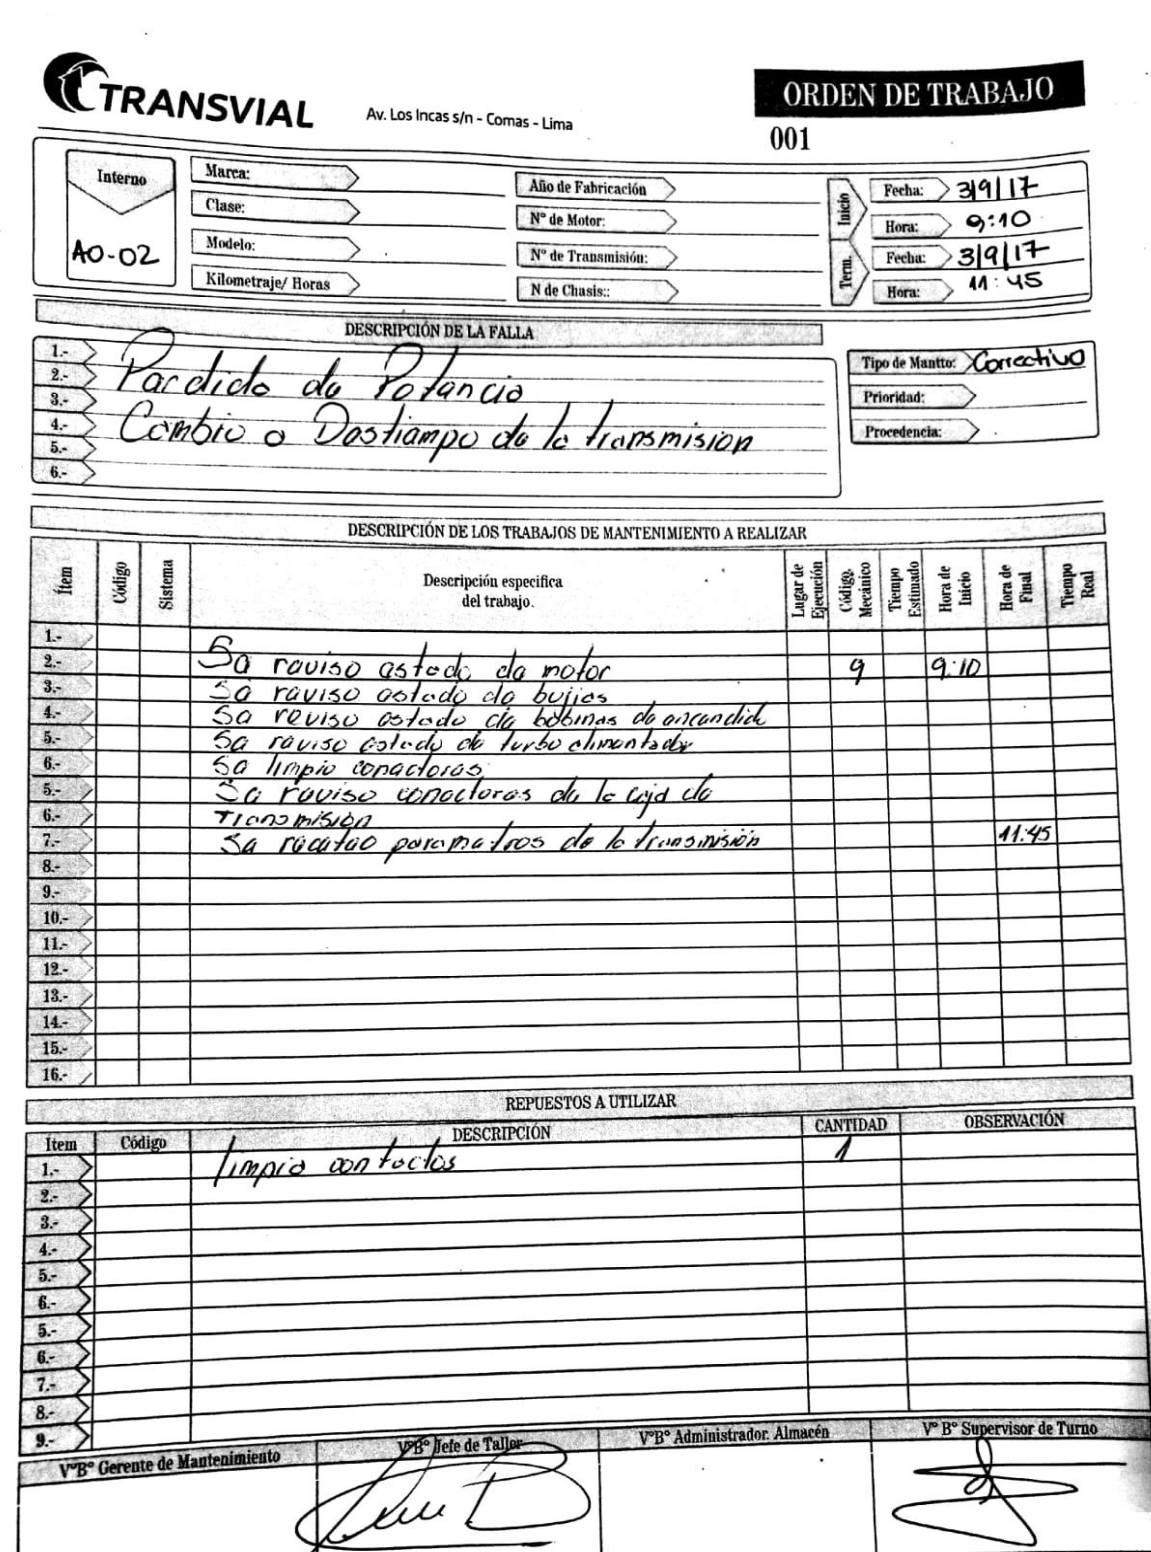 TRANSVIAL
Av. Los Incas s/n - Comas - Lima
ORDEN DE TRABAJO
001
Interno
AO-02
Marca:
Clase:
Modelo:
Kilometraje/ Horas
Año de Fabricación
N° de Motor:
N° de Transmisión:
N de Chasis::
Inicio
Fecha: 3/9/17
Hora: 9:10
Term.
Fecha: 3/9/17
Hora: 11:45
DESCRIPCIÓN DE LA FALLA
1.-
2.- Perdida de Potencia
3.-
4.- Cambio a Destiempo de la transmision
5.-
6.-
Tipo de Mantto: Correctivo
Prioridad:
Procedencia:
DESCRIPCIÓN DE LOS TRABAJOS DE MANTENIMIENTO A REALIZAR
Ítem Código Sistema Descripción especifica del trabajo. Lugar de Ejecución Códigg. Mecánico Tiempo Estimado Hora de Inicio Hora de Final Tiempo Real
1.-
2.- Se reviso estado de motor 9 9:10
3.- Se reviso estado de bujias
4.- Se reviso estado de bobinas de encendido
5.- Se reviso estado de turbo alimentador
6.- Se limpio conectores
5.- Se reviso conectores de la caja de
6.- Transmisión
7.- Se reseteo parametros de la transmisión 11:45
8.-
9.-
10.-
11.-
12.-
13.-
14.-
15.-
16.-
REPUESTOS A UTILIZAR
Item Código DESCRIPCIÓN CANTIDAD OBSERVACIÓN
1.- limpia contactos 1
2.-
3.-
4.-
5.-
6.-
5.-
6.-
7.-
8.-
9.-
V°B° Gerente de Mantenimiento V°B° Jefe de Taller V°B° Administrador. Almacén V° B° Supervisor de Turno